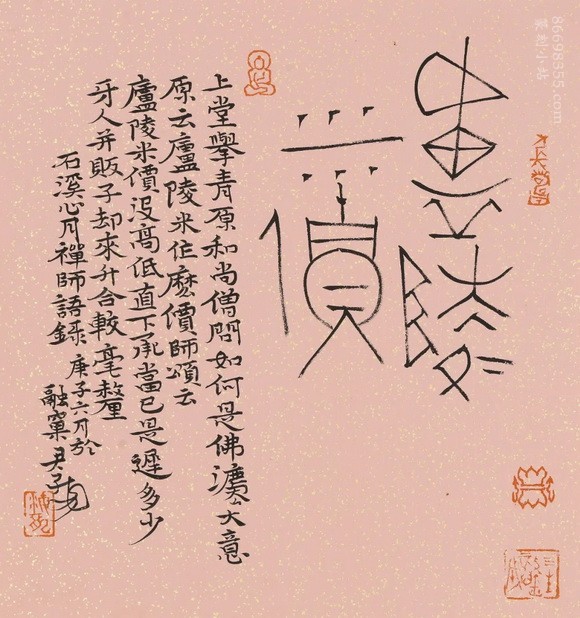 廬陵
米價
上堂舉青原和尚僧問如何是佛法大意
原云廬陵米作麽價師頌云
廬陵米價沒高低直下承當已是遲多少
牙人并販子却來升合較毫釐
石溪心月禪師語錄 庚子六月於
融窠 尹子
86698355.com
篆刻小站